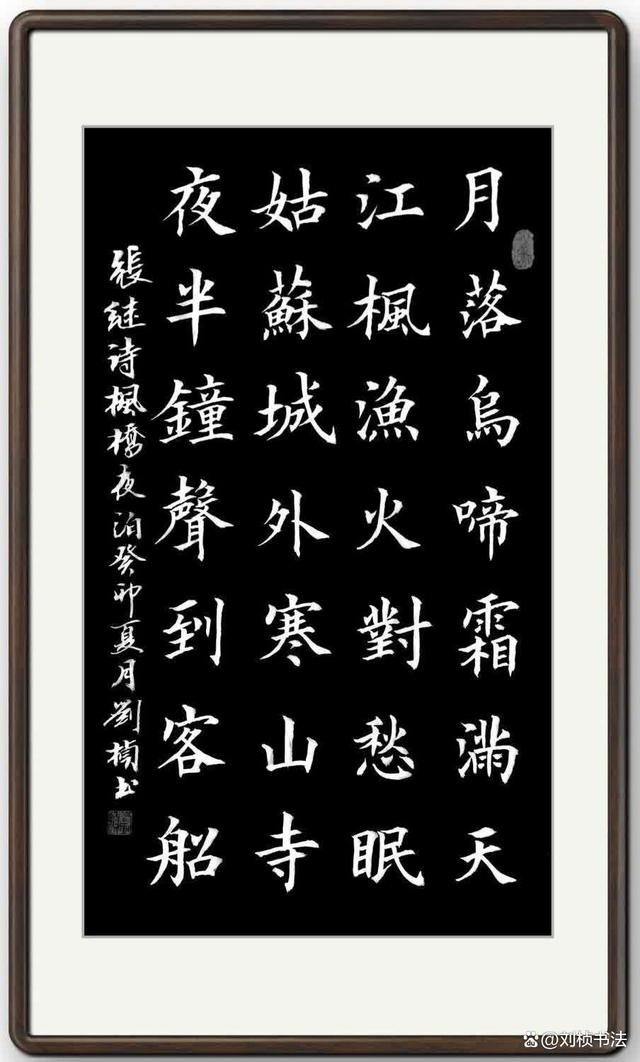 月落烏啼霜滿天
江楓漁火對愁眠
姑蘇城外寒山寺
夜半鐘聲到客船
張継诗楓橋夜泊癸卯夏月劉楨书
@刘桢书法